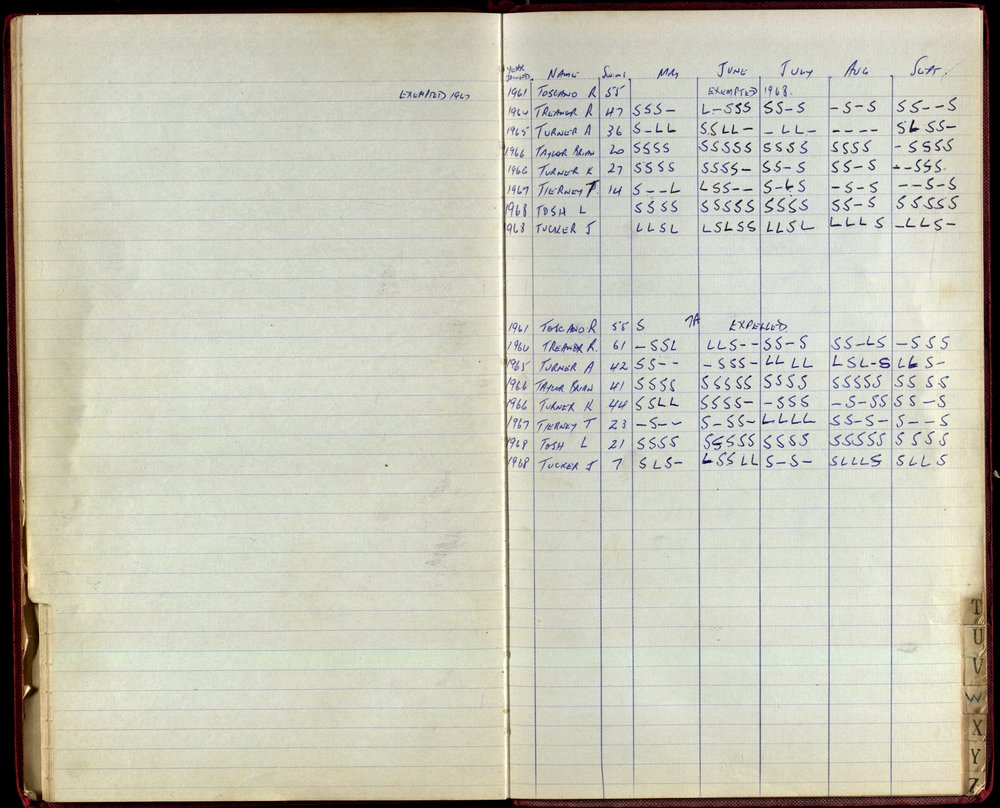 EXEMPTED 1967
YEAR JOINED NAME SWIMS MAY JUNE JULY AUG SEPT.
1961 TOSCANO R 55 EXEMPTED 1968.
1964 TREANOR R 47 SSS- L-SSS SS-S -S-S SS--S
1965 TURNER A 36 S-LL SSLL- -LL- ---- SLSS-
1966 TAYLOR BRIAN 20 SSSS SSSSS SSSS SSSS -SSSS
1966 TURNER K 27 SSSS SSSS- SS-S SS-S --SSS.
1967 TIERNEY T. 14 S--L LSS-- S-LS -S-S --S-S
1968 TOSH L SSSS SSSSS SSSS SS-S SSSSS
1968 TUCKER J LLSL LSLSS LLSL LLLS -LLS-
1961 TOSCANO R 55 S 7A EXPELLED.
1964 TREANOR R. 61 -SSL LLS-- SS-S SS-LS -SSS
1965 TURNER A 42 SS-- -SSS- LLLL LSL-S LLS-
1966 TAYLOR BRIAN 41 SSSS SSSSS SSSS SSSSS SSSS
1966 TURNER K 44 SSLL SSSS- -SSS -S-SS SS-S
1967 TIERNEY T 23 -S-- S-SS- LLLL SS-S- S--S
1968 TOSH L 21 SSSS SSSSS SSSS SSSSS SSSS
1968 TUCKER J 7 SLS- LSSLL S-S- SLLLS SLLS
T
U
V
W
X
Y
Z